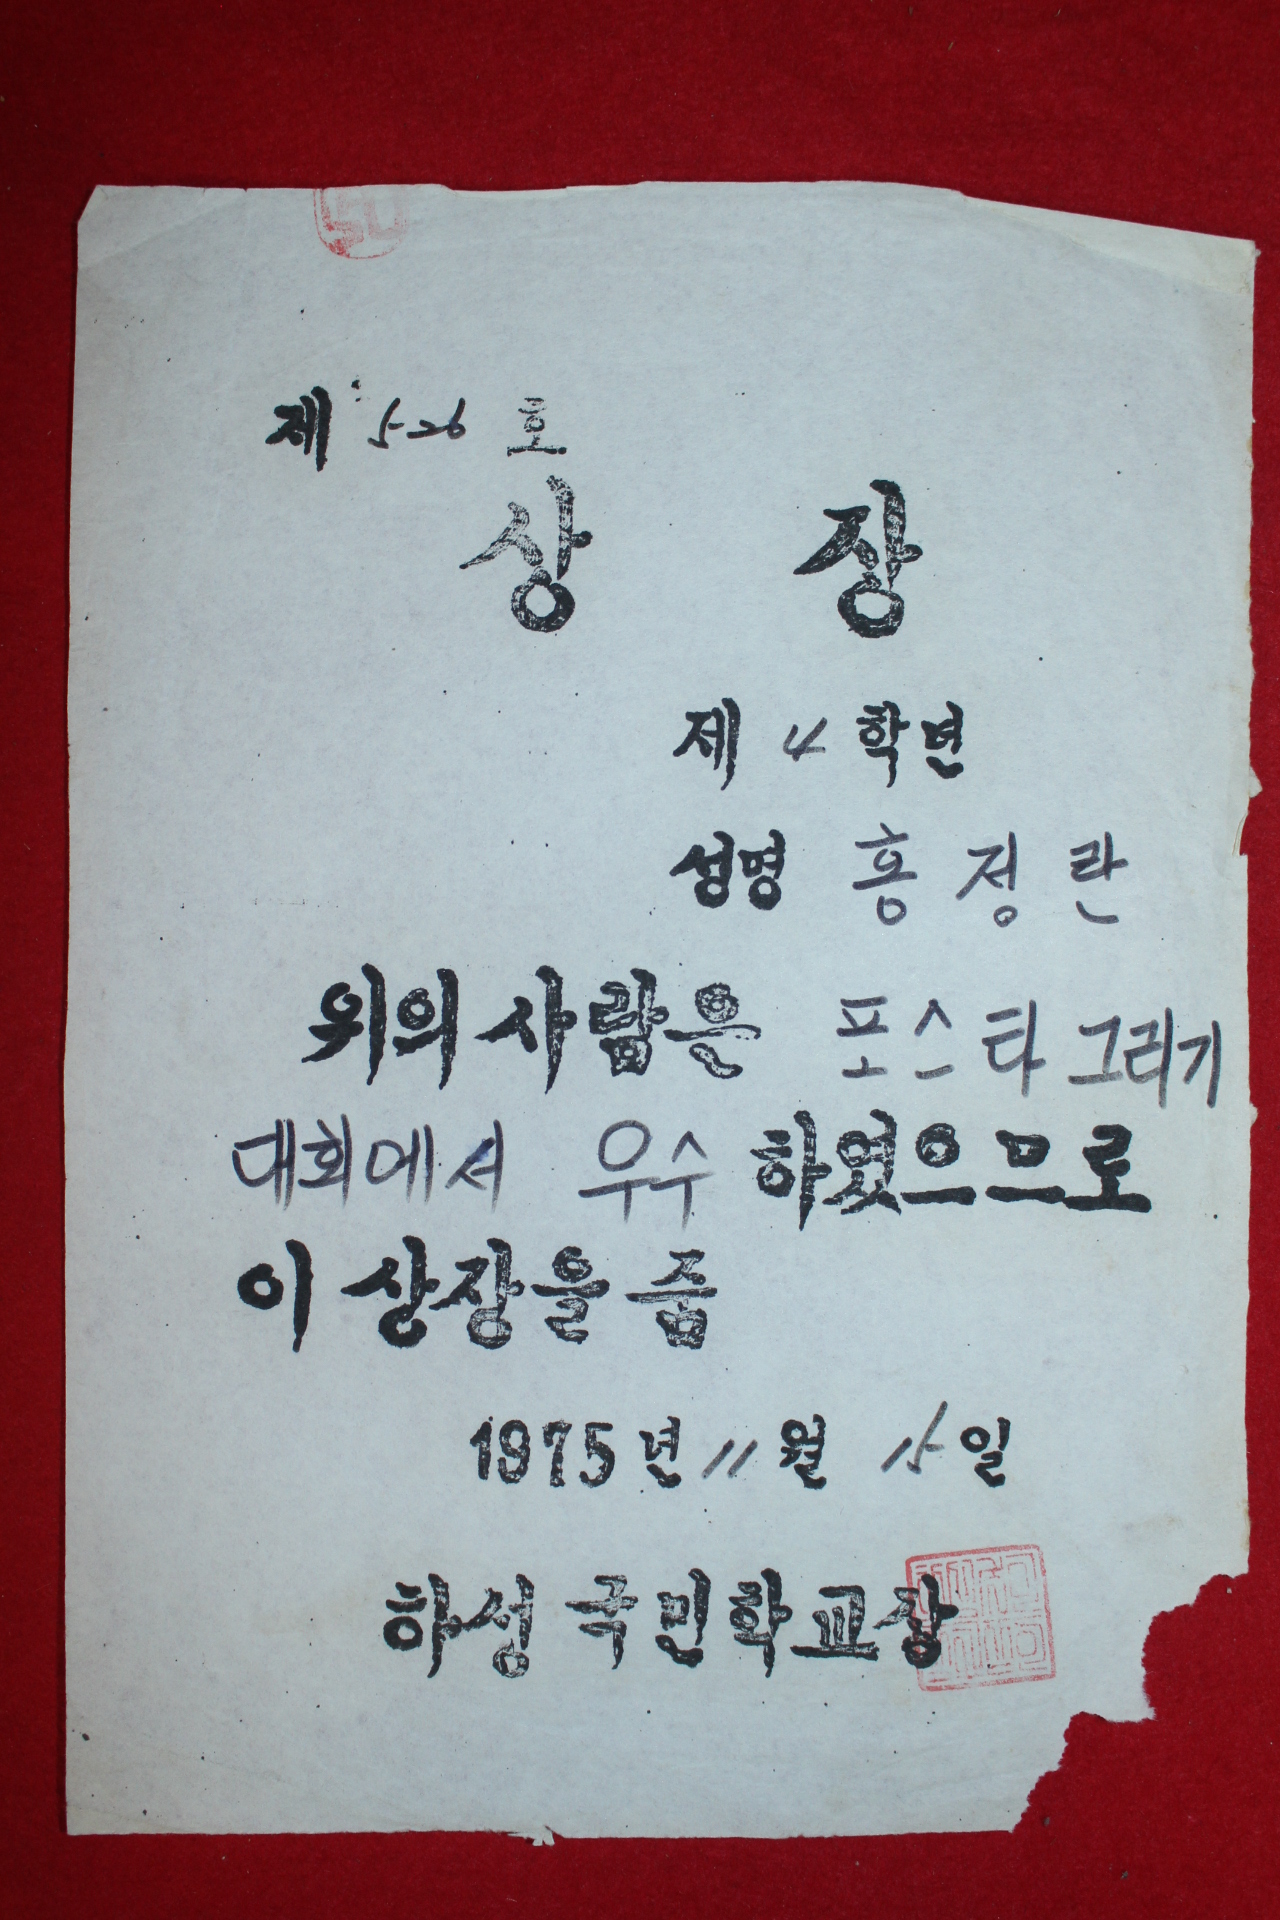 제 526 호
상 장
제 4 학년
성명 홍정란
위의 사람을 포스타 그리기
대회에서 우수 하였으므로
이 상장을 줌
1975년 11월 15일
하성 국민학교장